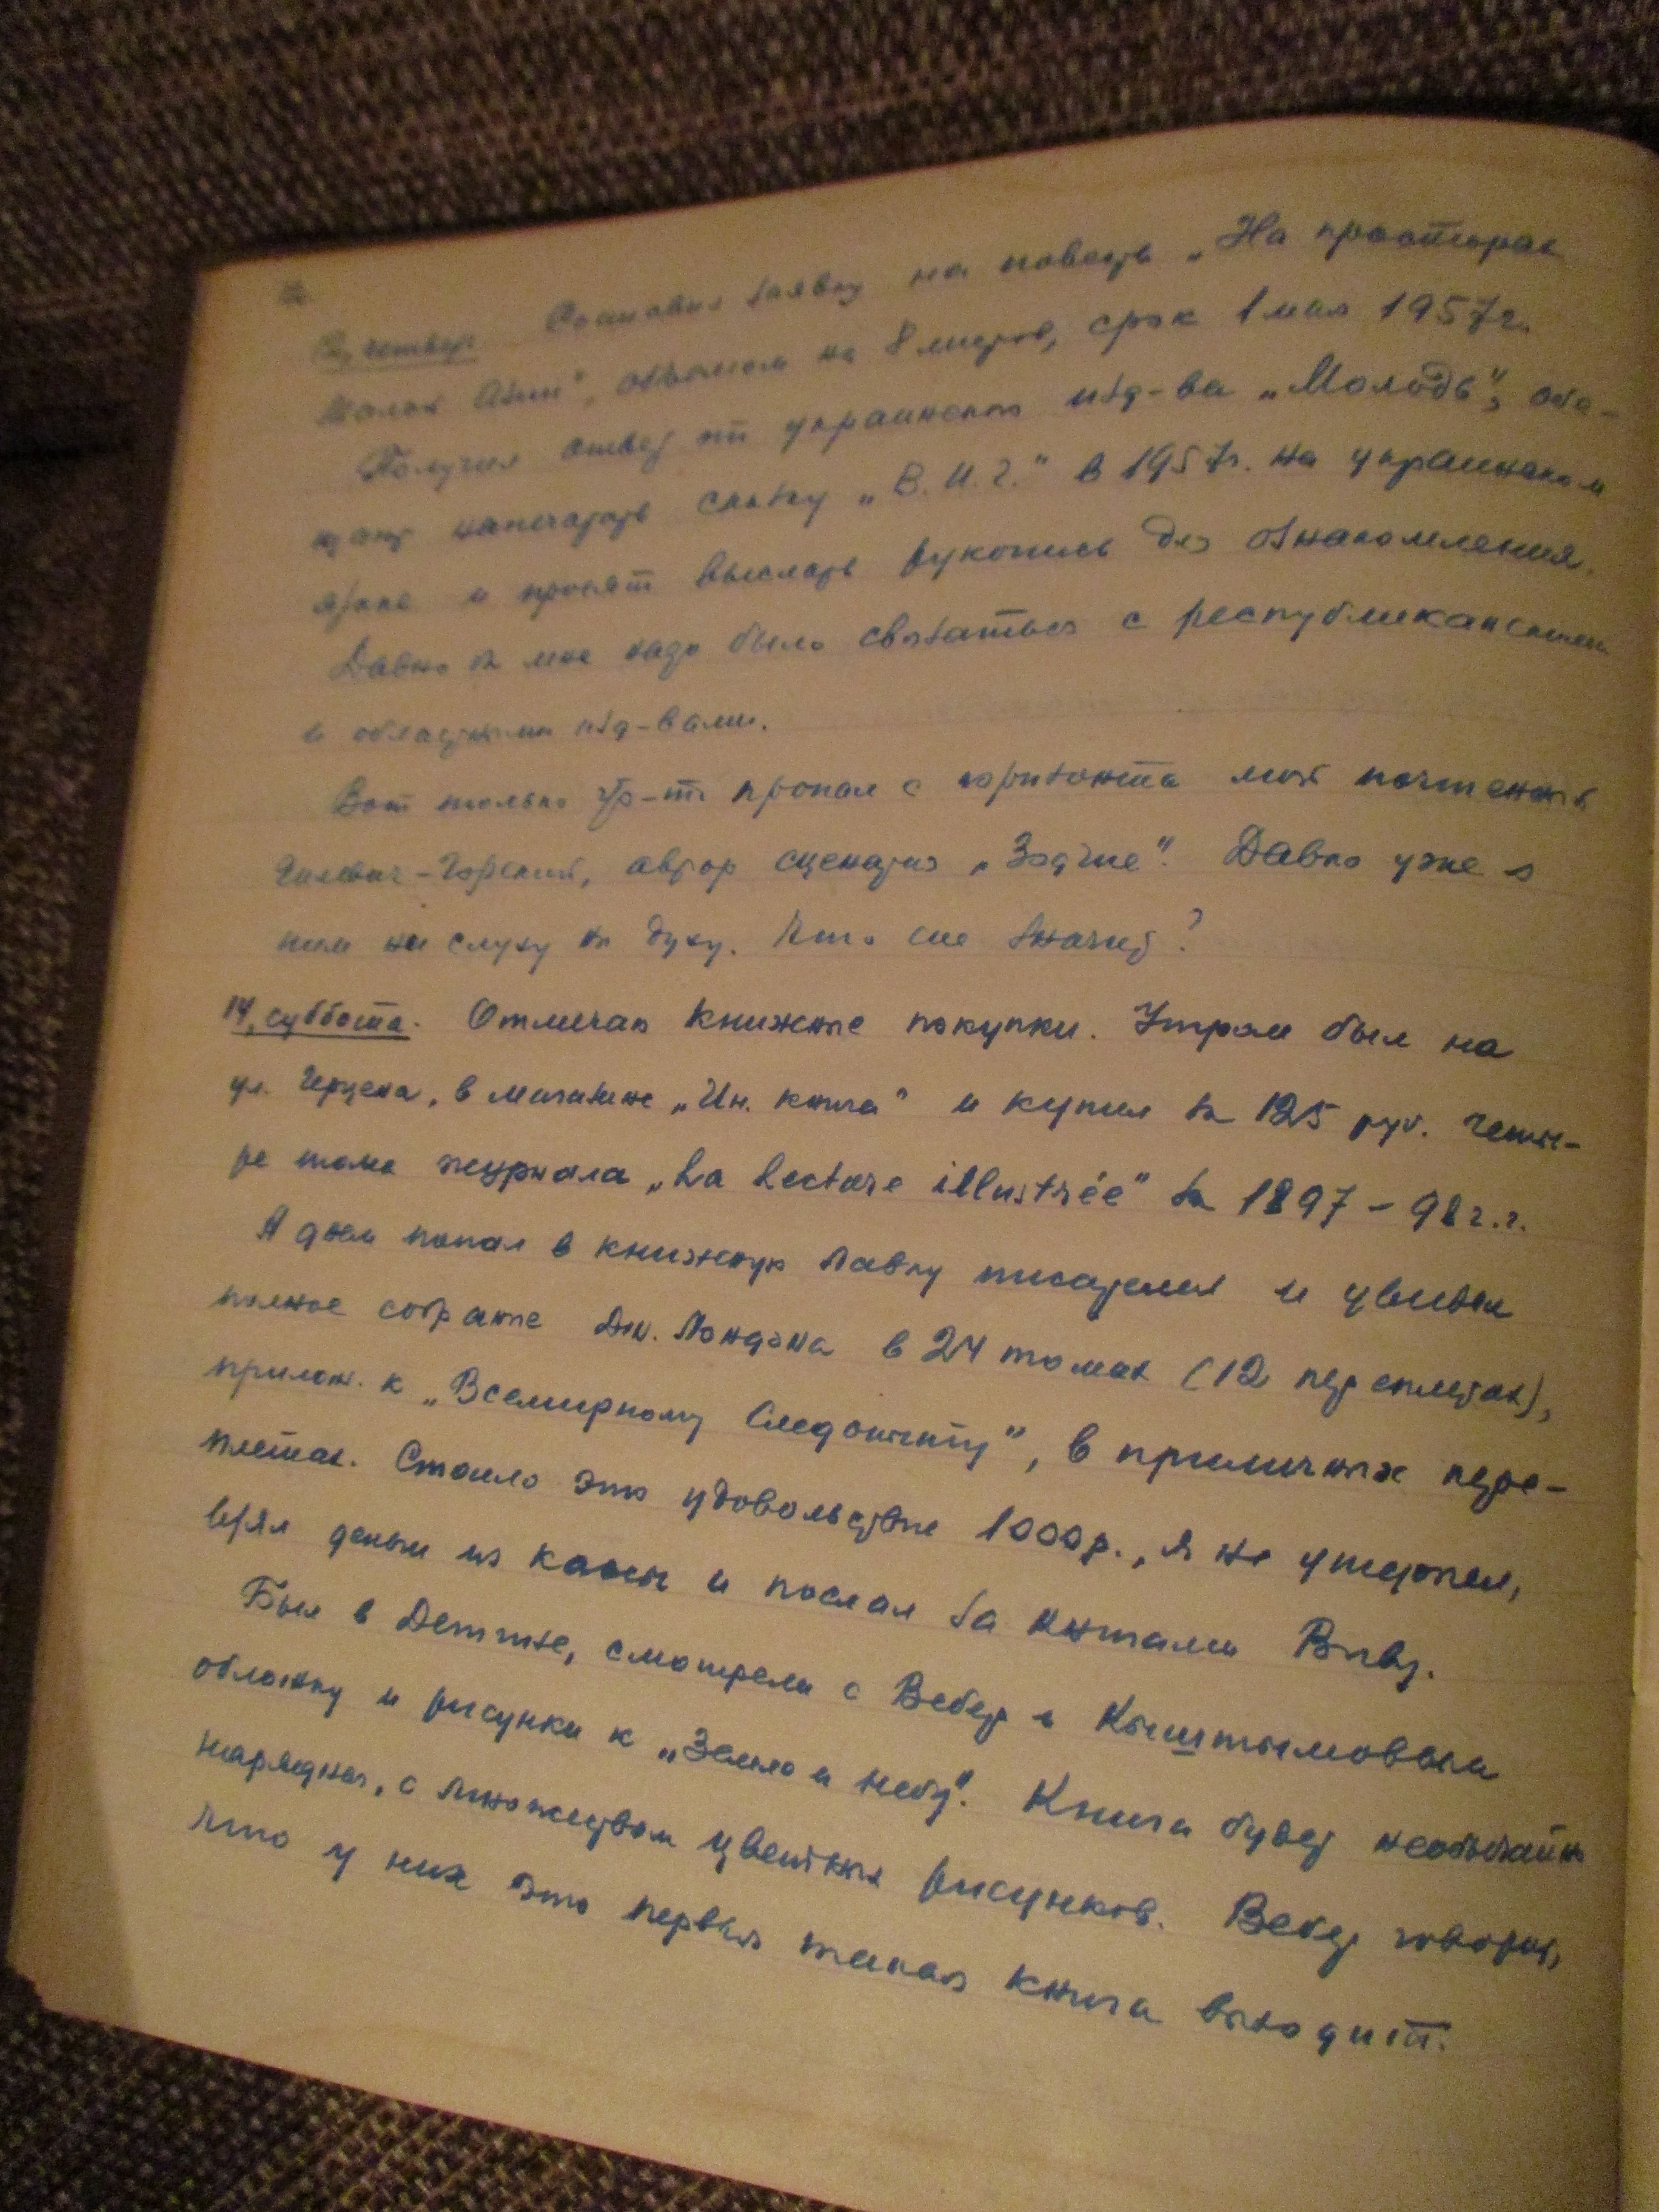 12, четверг. Составил заявку на повесть „На просторах
Малой Азии", объемом на 8 листов, срок 1 мая 1957 г.
Получил ответ от украинского изд-ва „Молодь", обе-
щают напечатать сказку „В. И. Г." в 1957 г. на украинском
языке и просят выслать рукопись для ознакомления.
Давно бы мне надо было связаться с республиканскими
и областными изд-вами.
Вот только что-то пропал с горизонта мой почтенный
автор сценария „Зодчие". Давно уже о
нем ни слуху ни духу. Что сие значит?
14, суббота. Отмечаю книжные покупки. Утром был на
ул. Герцена, в магазине „Ин. книга" и купил за 125 руб. четы-
ре тома журнала „La Lecture illustrée" за 1897 – 98 г.г.
А днем попал в книжную лавку писателей и увидел
полное собрание Дж. Лондона в 24 томах (12 переплетах),
прилож. к „Всемирному Следопыту", в приличных пере-
плетах. Стоило это удовольствие 1000 р., я не утерпел,
взял деньги из кассы и послал за книгами
Был в Детгизе, смотрели с Вебер и Кыштымовым
обложку и рисунки к „Земле и небу". Книга будет необычайно
нарядная, с множеством цветных рисунков. Вебер говорит,
что у них это первая такая книга выходит.